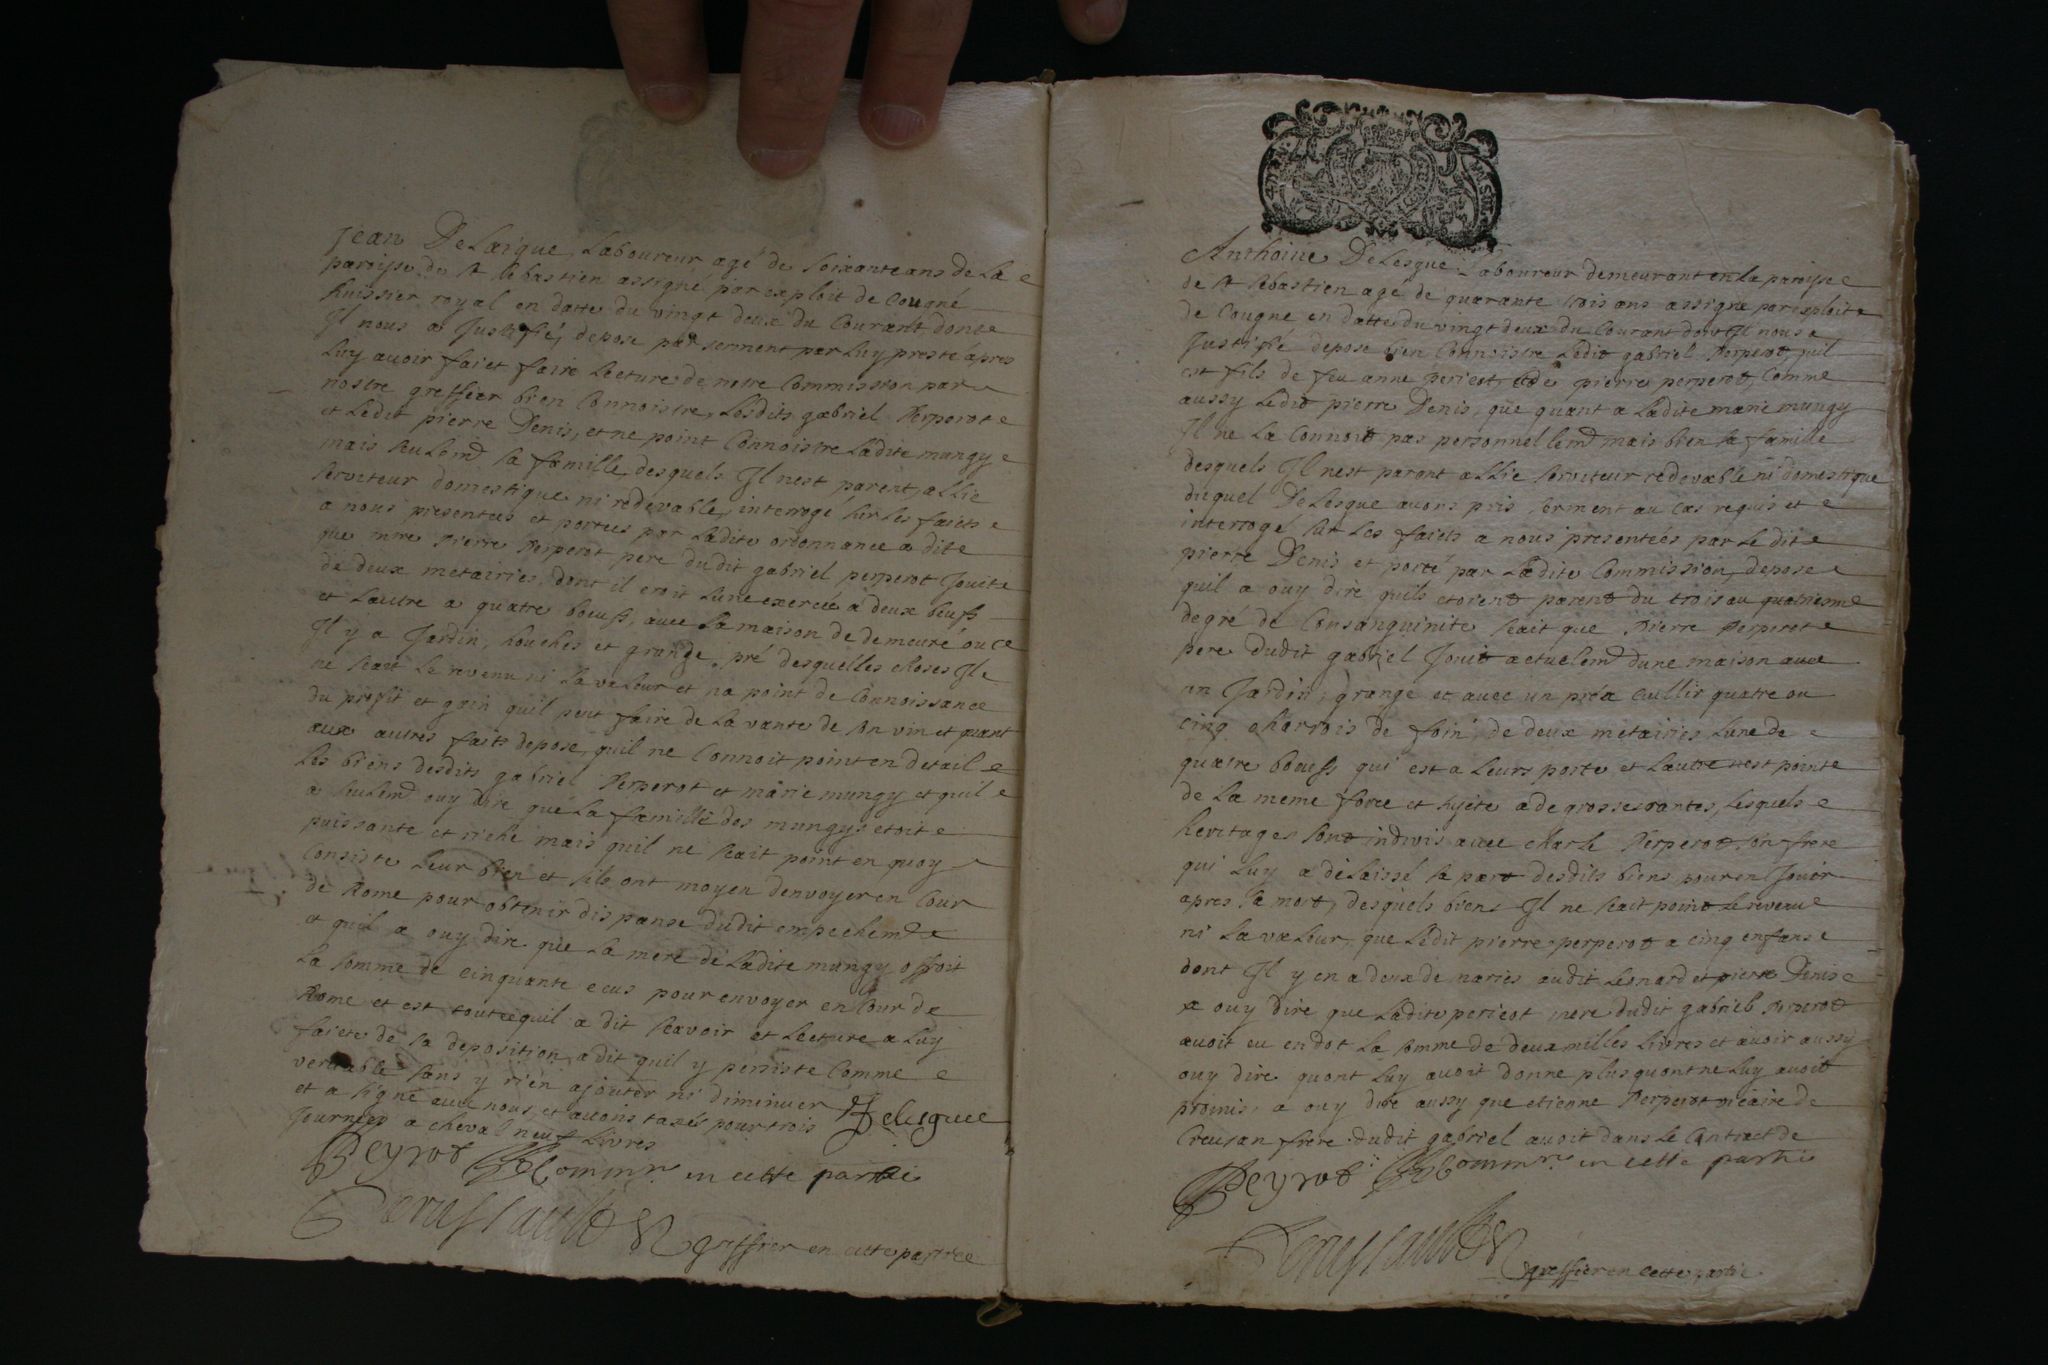 Jean Delaigue Laboureur agé de soixante ans de la
paroisse de St Sebastien assigné par exploit de Cougné
huissier royal en datte du vingt deux du Courant dont
Il nous a Justifié, depose par serment par luy presté apres
luy avoir faict faire lecture de notre Commission par
nostre greffier bien Connoistre Lesdits gabriel Perperot
et Ledit pierre Denis, et ne point Connoistre Ladite mungy
mais seulemt sa famille, desquels Il nest parent, allié
serviteur domestique ni redevable, interrogé sur les faicts
a nous presentees et portees par Ladite ordonnance a dit
que mre Pierre Perperot pere dudit gabriel perperot Jouit
de deux metairies, dont il croit lune exercée a deux beufs
et Lautre a quatre boeufs, avec la maison de demeure ou
Il y a Jardin, houches et grange, pré desquelles choses Il
ne scait le revenu ni la valeur et na point de Connoissance
du profit et gain quil peut faire de la vante de son vin et quant
aux autres faits depose, quil ne Connoit point en detail
les biens desdits gabriel Perperot et marie mungy et quil
a seulemt ouy dire que la famille des mungys etoit
puissante et riche mais quil ne scait point en quoy
Consiste leur bien et sils ont moyen denvoyer en Cour
de Rome pour obtenir dispanse dudit empechemt
et quil a ouy dire que la mere de ladite mungy offroit
la somme de cinquante ecus pour envoyer en Cour de
Rome et est tout cequil a dit scavoir et lecture a luy
faicte de sa deposition, a dit quil y persiste Comme
veritable sans y rien ajouter ni diminuer
et a signé avec nous, et avons taxés pour trois Delesgue
Journées a cheval neuf Livres
Peyrot Commre en cette partie
greffier en cette partie
Anthoine Delesgue Laboureur demeurant en la paroisse
de St Sebastien agé de quarante trois ans assigné par exploit
de Cougné en datte du vingt deux du Courant dont Il nous
Justifié depose bien Connoistre Ledit gabriel Perperot, quil
est fils de feu anne pericot et de pierre perperot, Comme
aussy Ledit pierre Denis, que quant a Ladite marie mungy
Il ne la Connoit pas personnellemt mais bien sa famille
desquels Il nest parent allié serviteur redevable ni domestique
duquel Delesgue avons pris serment au cas requis et
interrogé sur les faicts a nous presentées par Le dit
pierre Denis et porté par Ladite Commission, depose
quil a ouy dire quils etoient parent du trois au quatriesme
degré de Consanguinité scait que Pierre Perperot
pere dudit gabriel Jouit actuelemt dune maison avec
un Jardin, grange et avec un pré a cullir quatre ou
cinq charrois de foin, de deux metairies lune de
quatre boeufs qui est a leurs porte et lautre nest point
de la meme force et sujete a de grosses rantes, lesquels
heritages sont indivis avec charle Perperot son frere
qui luy a delaissé sa part desdits biens pour en Jouir
apres sa mort, desquels biens Il ne scait point le revenu
ni la valeur, que Ledit pierre perperot a cinq enfans
dont Il y en a deux de mariés audit Leonard et pierre Denis
a ouy dire que Ladite pericot mere dudit gabriel Perperot
avoit eu en dot la somme de deux milles livres et avoir aussy
ouy dire quont luy avoit donné plus quont ne luy avoit
promis, a ouy dire aussy que etienne Perperot vicaire de
Creusan frere dudit gabriel avoit dans le Contract de
Peyrot Commre en cette partie
greffier en cette partie